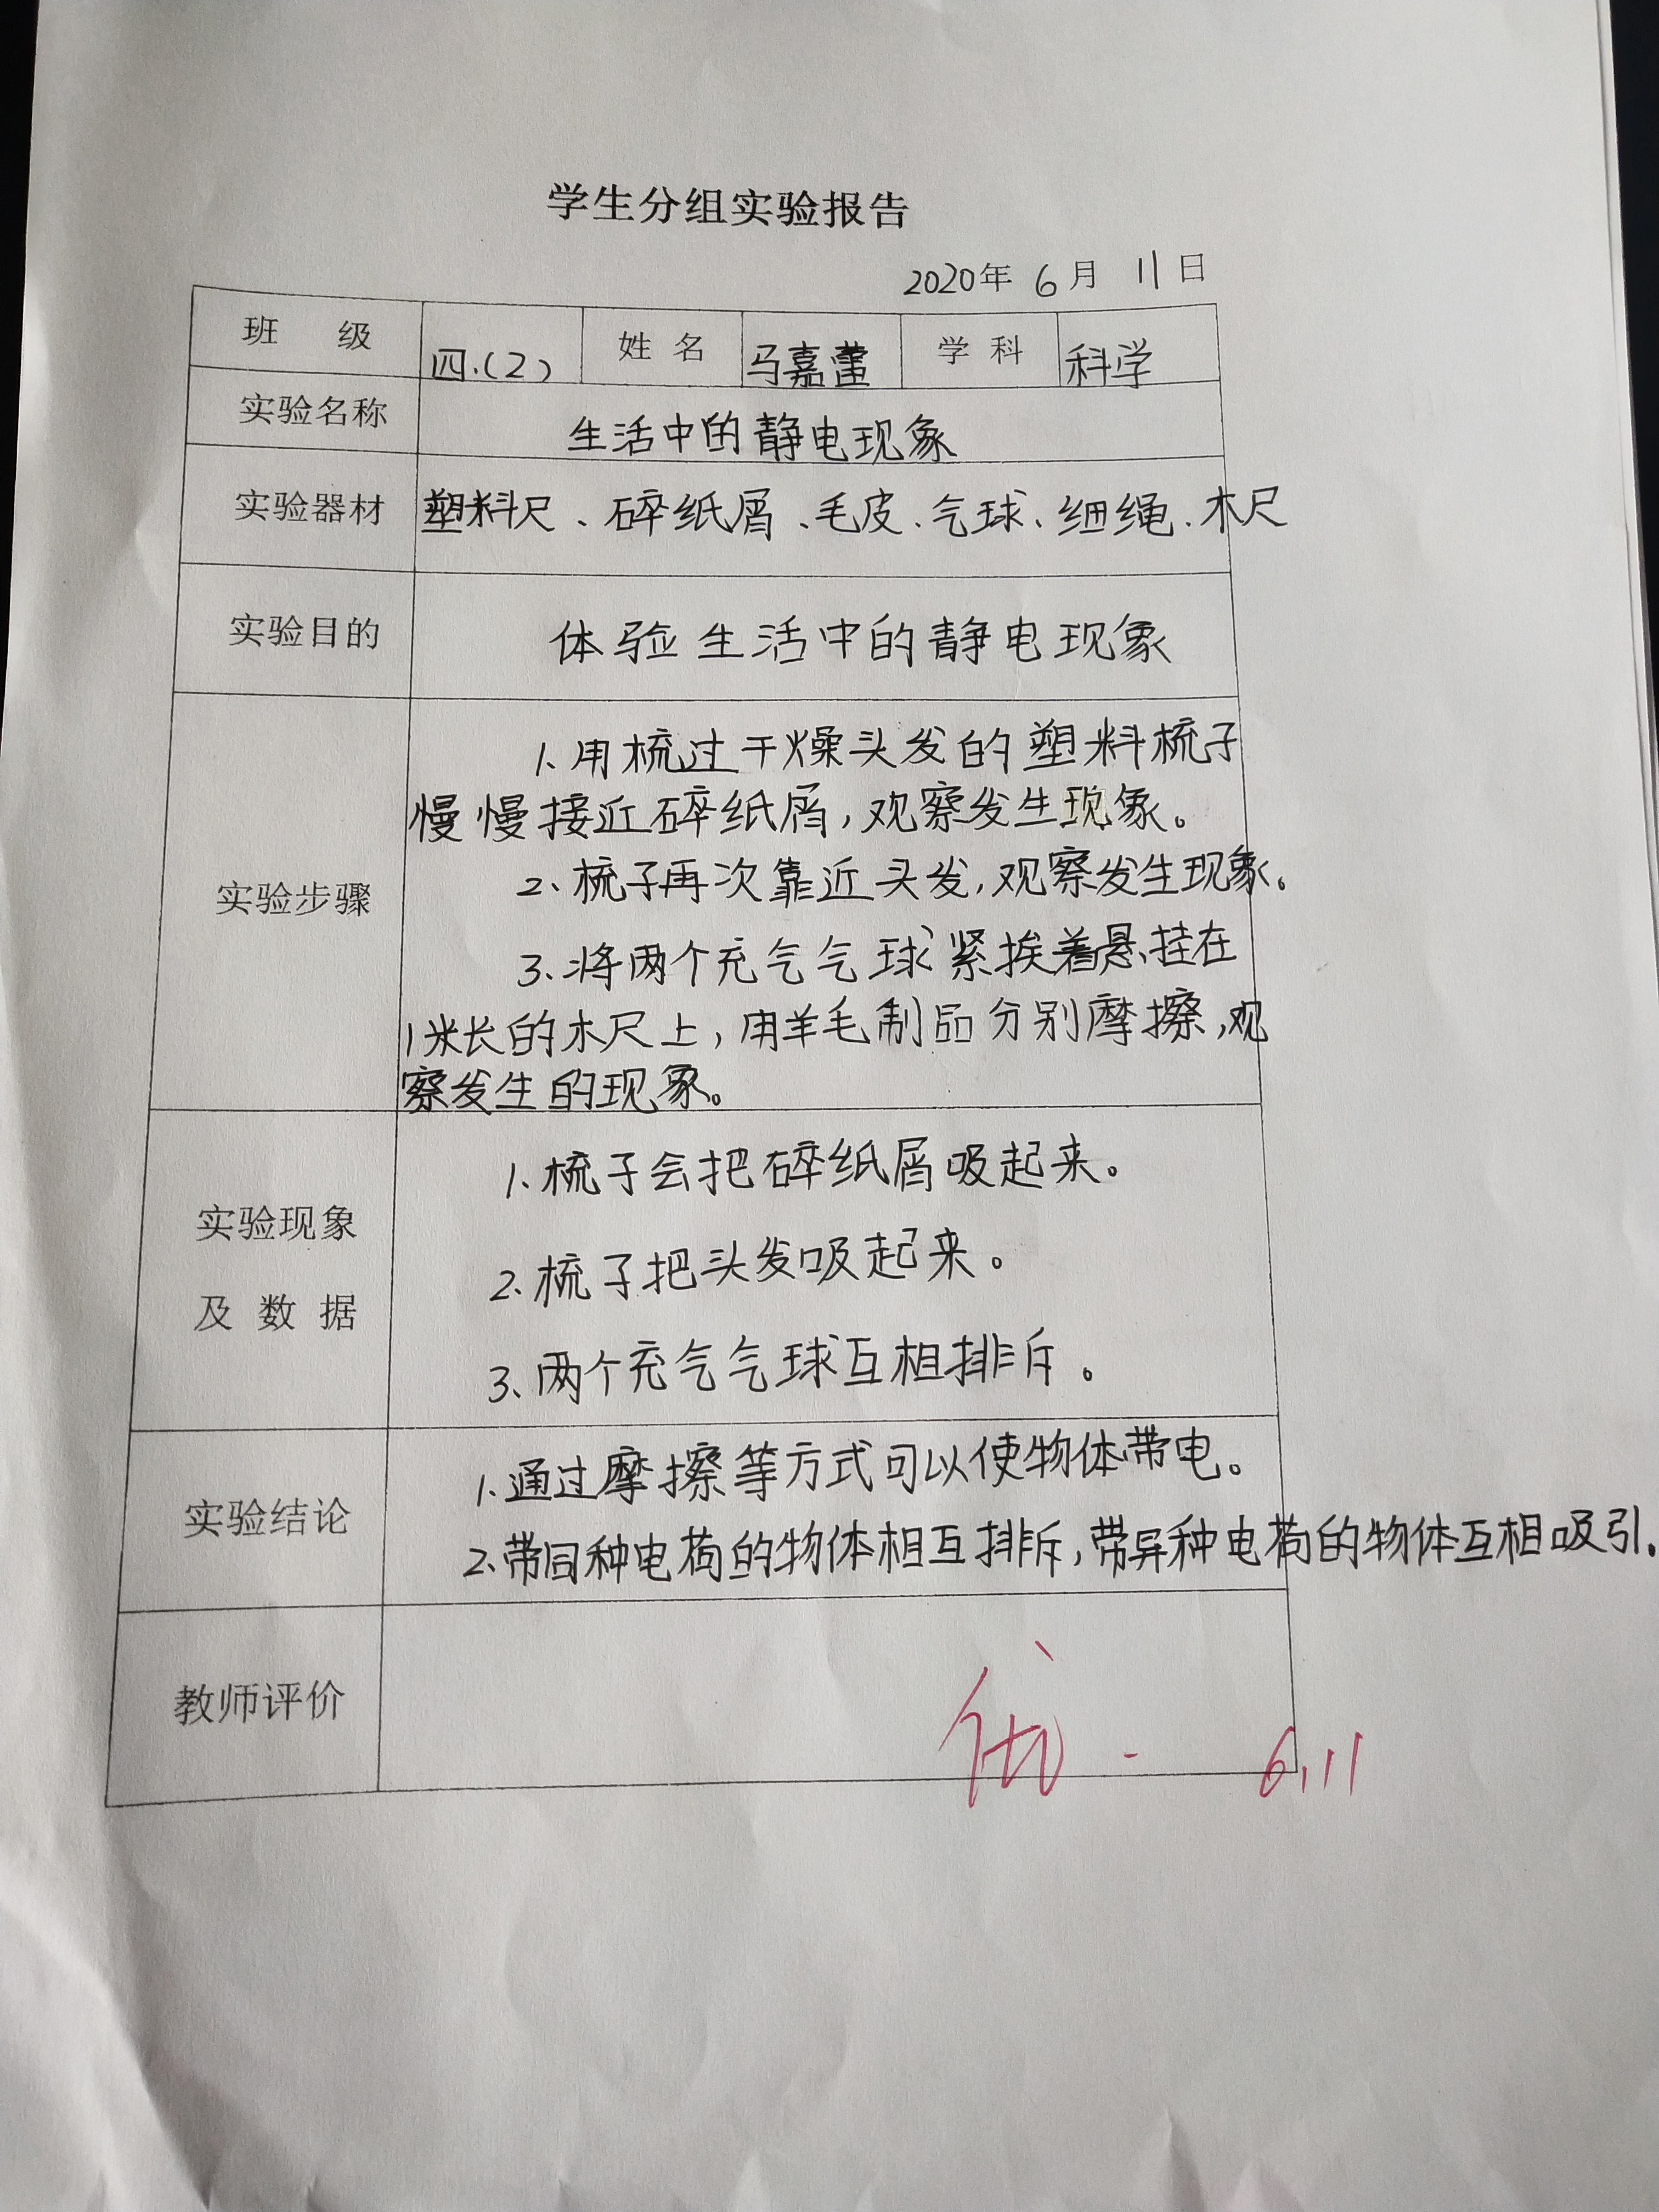 学生分组实验报告
2020年 6月 11日
班 级 四.(2) 姓 名 马嘉蕾 学 科 科学
实验名称 生活中的静电现象
实验器材 塑料尺、碎纸屑、毛皮、气球、细绳、木尺
实验目的 体验生活中的静电现象
实验步骤
1、用梳过干燥头发的塑料梳子
慢慢接近碎纸屑,观察发生现象。
2、梳子再次靠近头发,观察发生现象。
3、将两个充气气球紧挨着悬挂在
1米长的木尺上,用羊毛制品分别摩擦,观
察发生的现象。
实验现象
及 数 据
1、梳子会把碎纸屑吸起来。
2、梳子把头发吸起来。
3、两个充气气球互相排斥。
实验结论
1、通过摩擦等方式可以使物体带电。
2、带同种电荷的物体相互排斥,带异种电荷的物体互相吸引。
教师评价 优- 6.11